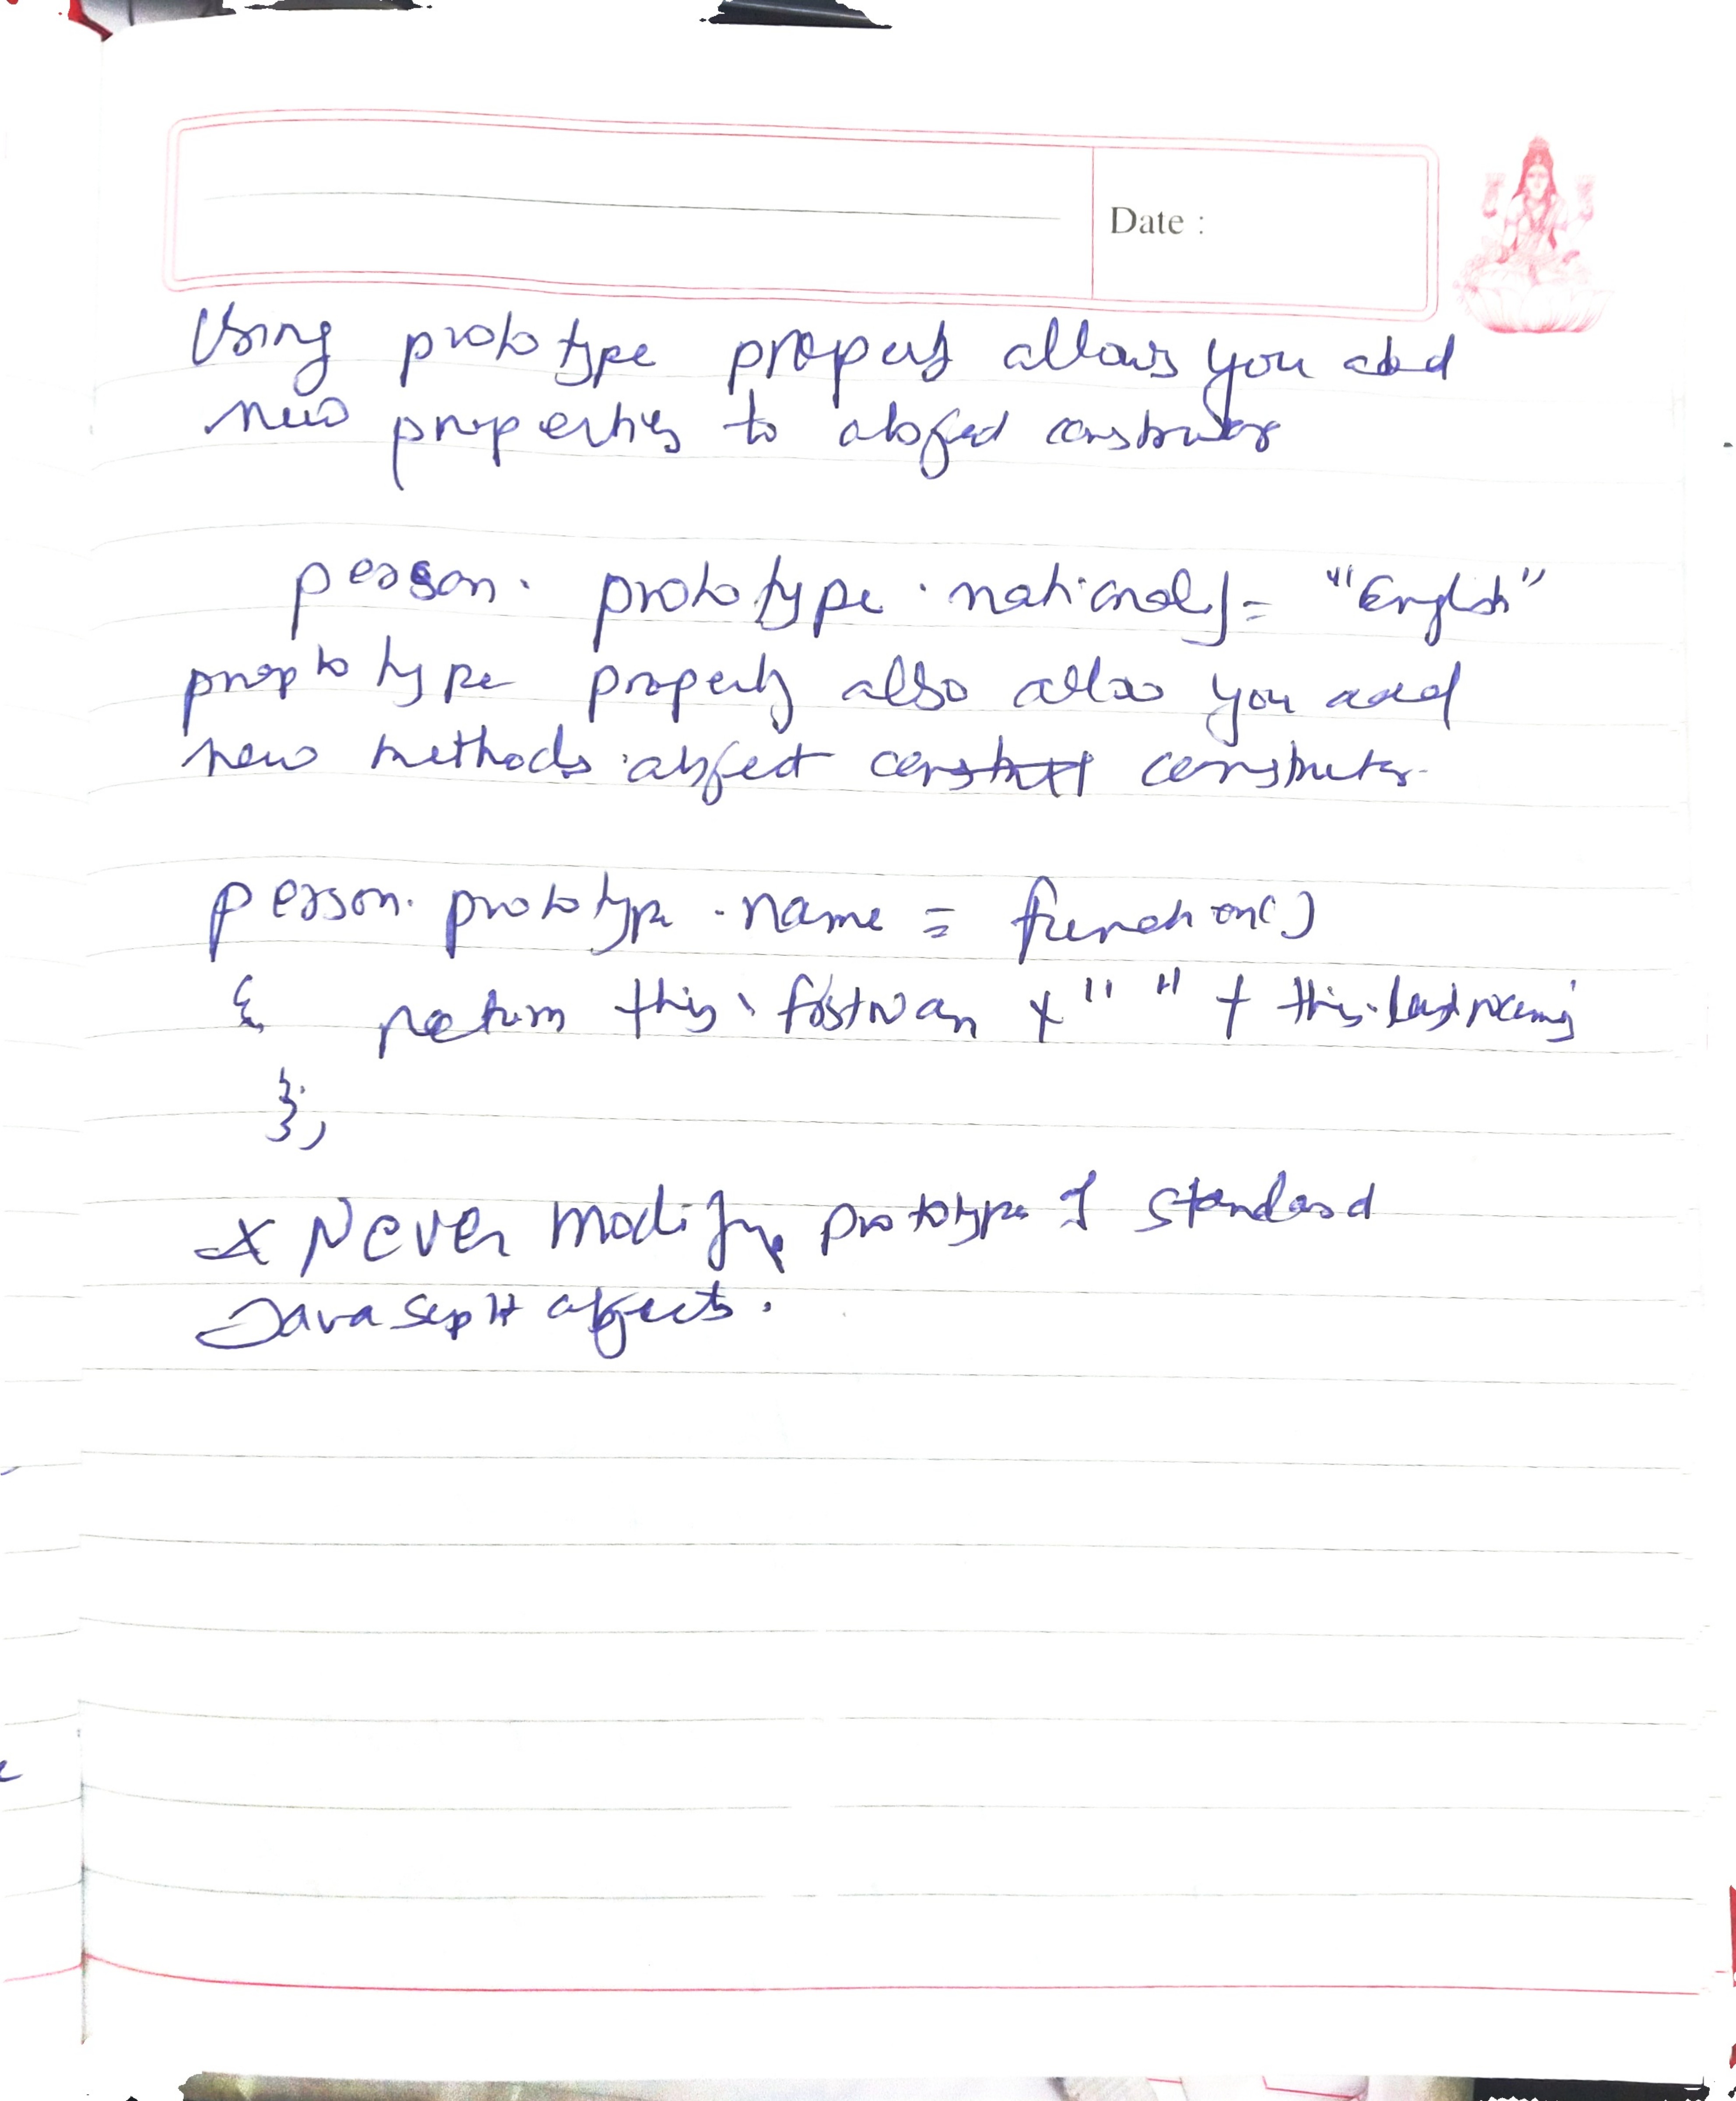 Date :
Using prototype property allows you add
new properties to object constructor
person. prototype . nationality = "English"
proptotype property also allow you add
new methods object constructor.
person. prototype . name = function()
{ return this. firstNam + " " + this.lastname;
};
* Never modify prototype of standard
JavaScript objects.